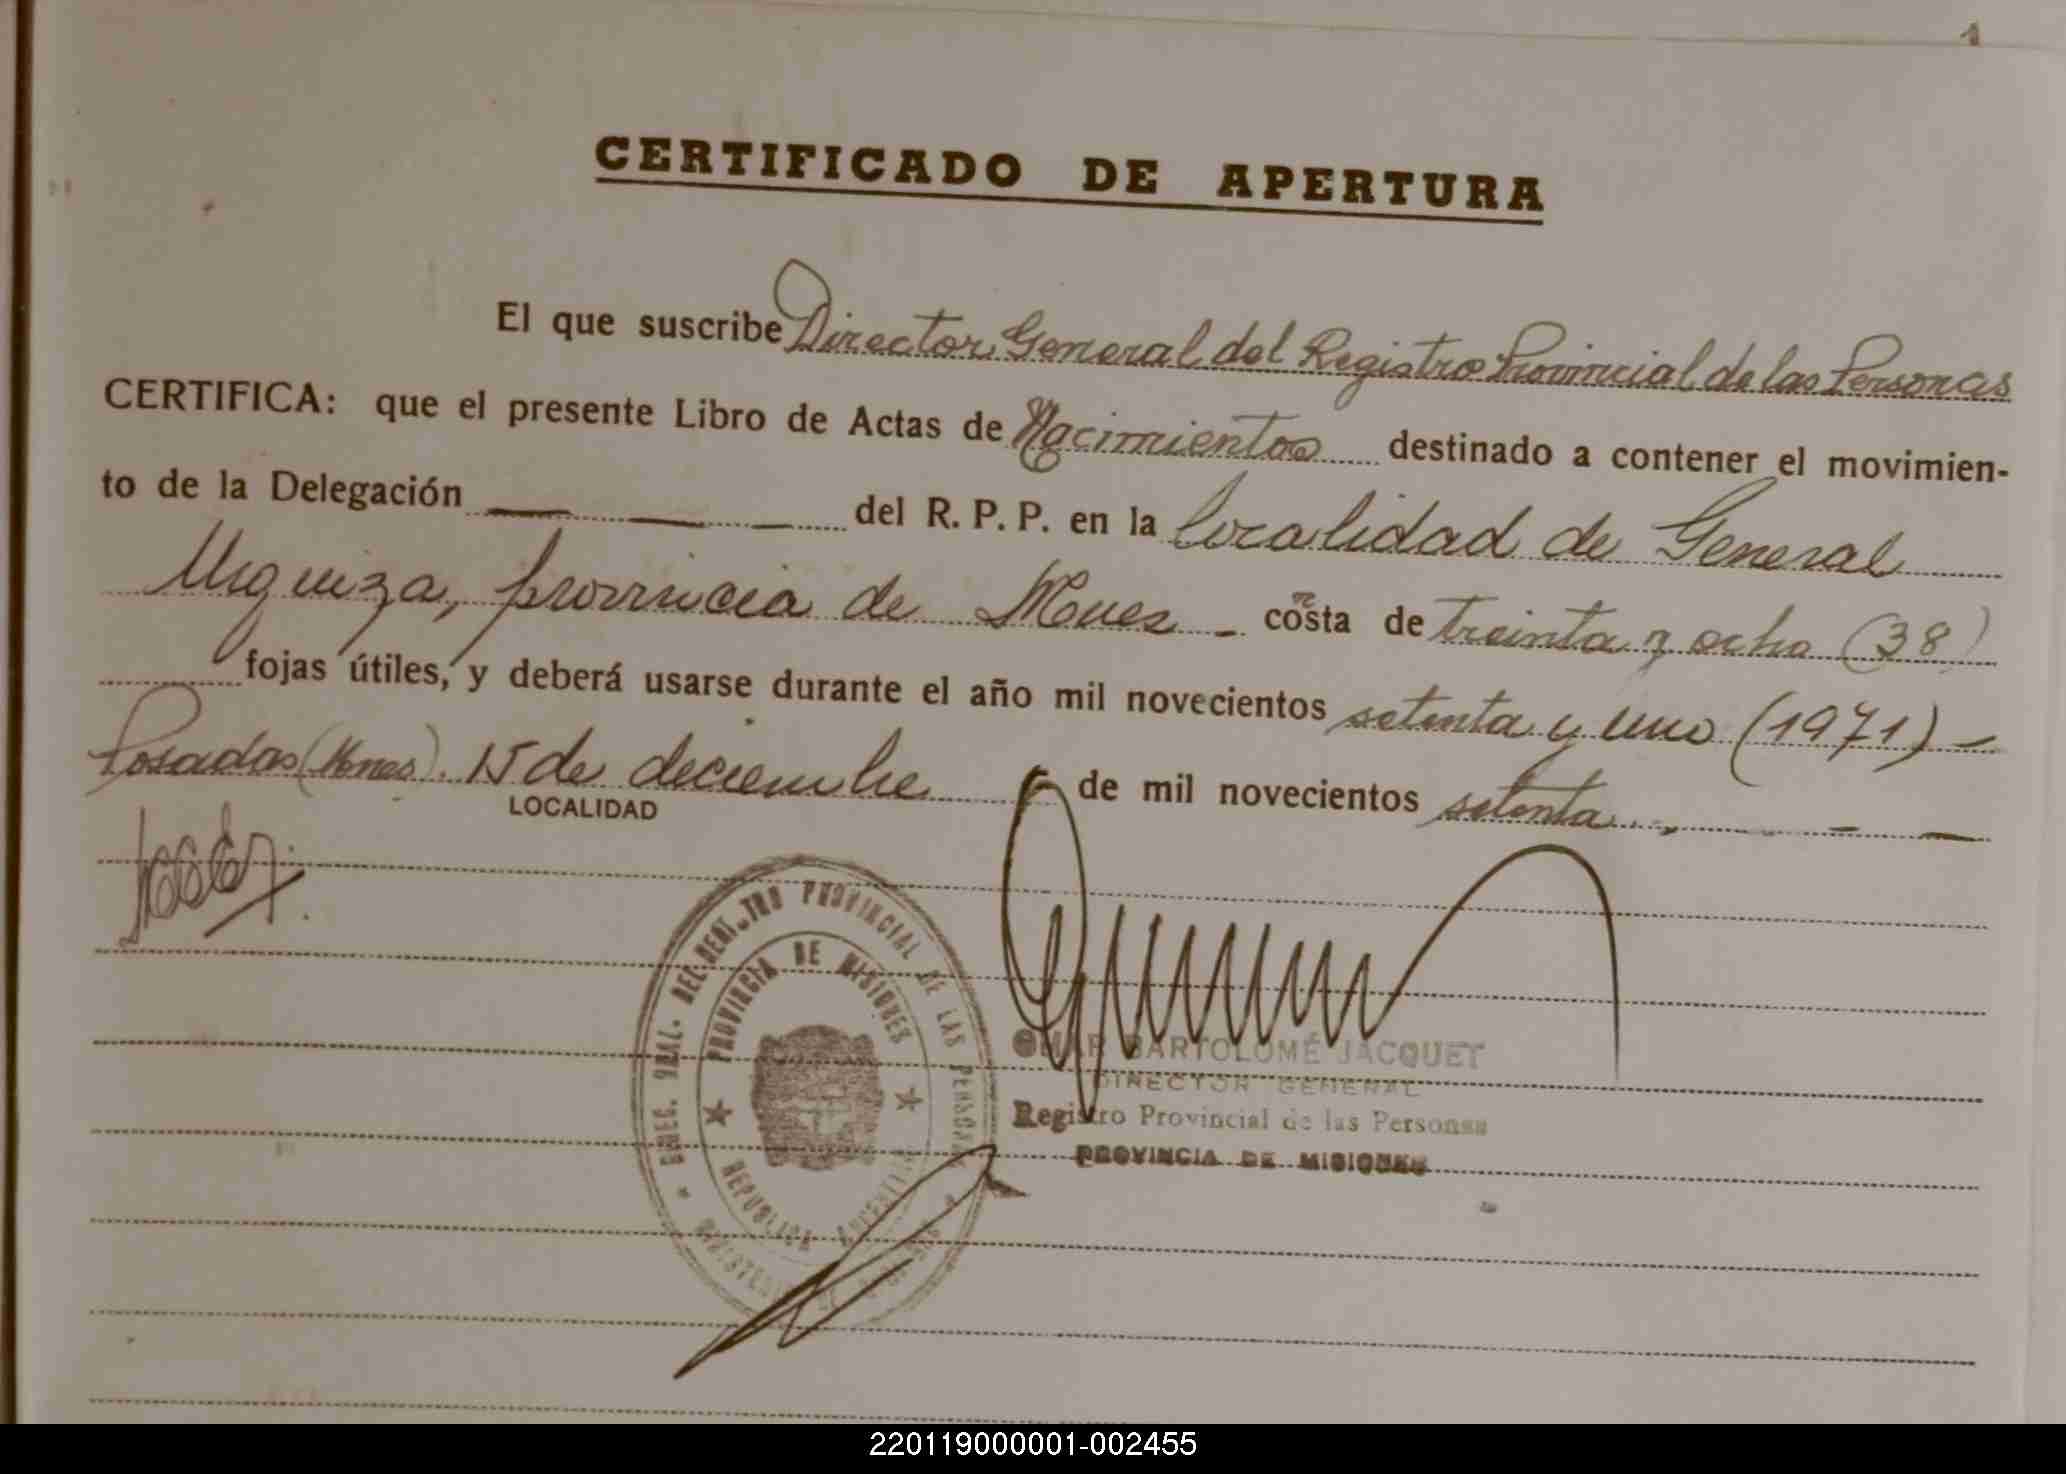 1
CERTIFICADO DE APERTURA
El que suscribe Director General del Registro Provincial de las Personas
CERTIFICA: que el presente Libro de Actas de Nacimientos destinado a contener el movimien-
to de la Delegación — — — del R. P. P. en la localidad de General
Urquiza, provincia de Mnes - costa de treinta y ocho (38)
n
fojas útiles, y deberá usarse durante el año mil novecientos setenta y uno (1971) —
Posadas (Mnes). 15 de diciembre de mil novecientos setenta. - - —
LOCALIDAD
DIREC. GRAL. DEL REGISTRO PROVINCIAL DE LAS PERSONAS
PROVINCIA DE MISIONES
REPUBLICA ARGENTINA
OMAR BARTOLOMÉ JACQUET
DIRECTOR GENERAL
Registro Provincial de las Personas
PROVINCIA DE MISIONES
220119000001-002455